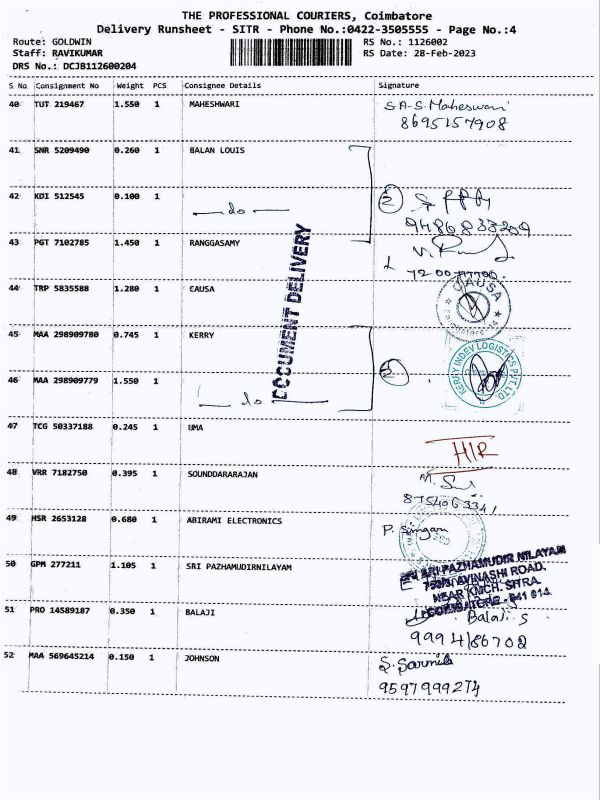 THE PROFESSIONAL COURIERS, Coimbatore
Delivery Runsheet - SITR - Phone No.:0422-3505555 - Page No.:4
Route: GOLDWIN RS No.: 1126002
Staff: RAVIKUMAR RS Date: 28-Feb-2023
DRS No.: DCJB112600204
S No. Consignment No Weight PCS Consignee Details Signature
40 TUT 219467 1.550 1 MAHESHWARI S.A.S. Maheswari
8695157908
41 SNR 5209490 0.260 1 BALAN LOUIS
42 KDI 512545 0.100 1 — do — 2
9486833209
43 PGT 7102785 1.450 1 RANGGASAMY
DOCUMENT DELIVERY
44 TRP 5835588 1.280 1 CAUSA CAUSA
45 MAA 298909780 0.745 1 KERRY KERRY INDEV LOGISTICS PVT. LTD
46 MAA 298909779 1.550 1 — do — 2
47 TCG 50337188 0.245 1 UMA
HIR
48 VRR 7182750 0.395 1 SOUNDDARARAJAN
49 HSR 2653128 0.680 1 ABIRAMI ELECTRONICS
50 GPM 277211 1.105 1 SRI PAZHAMUDIRNILAYAM SRI PAZHAMUDIR NILAYAM
AVINASHI ROAD,
NEAR KMCH. SITRA.
COIMBATORE - 641 014
51 PRO 14589187 0.350 1 BALAJI Balaji. S
9994186702
52 MAA 569645214 0.150 1 JOHNSON S. Sarmila
9597999274